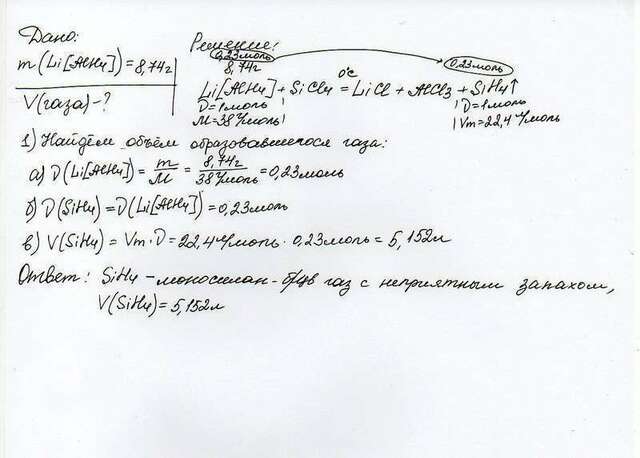 Дано:
m(Li[AlH4])=8,74г
V(газа)-?
Решение:
0,23моль
8,74г
0,23моль
0°C
Li[AlH4]+SiCl4=LiCl+AlCl3+SiH4↑
ν=1моль
ν=1моль
M=38г/моль
Vm=22,4 л/моль
1) Найдём объём образовавшегося газа:
а) ν(Li[AlH4])=m/M=8,74г/38г/моль=0,23моль
б) ν(SiH4)=ν(Li[AlH4])=0,23моль
в) V(SiH4)=Vm·ν=22,4л/моль·0,23моль=5,152л
Ответ: SiH4-моносилан-б/цв газ с неприятным запахом,
V(SiH4)=5,152л